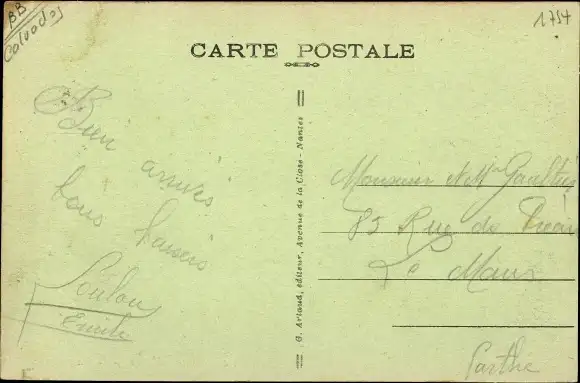 BB
Calvados
1754
CARTE POSTALE
Bien arrivés
bons baisers
Loulou
Emile
G. Artaud, éditeur, Avenue de la Close - Nantes
Monsieur et Mme Gaultier
85 Rue de
Le Mans
Sarthe